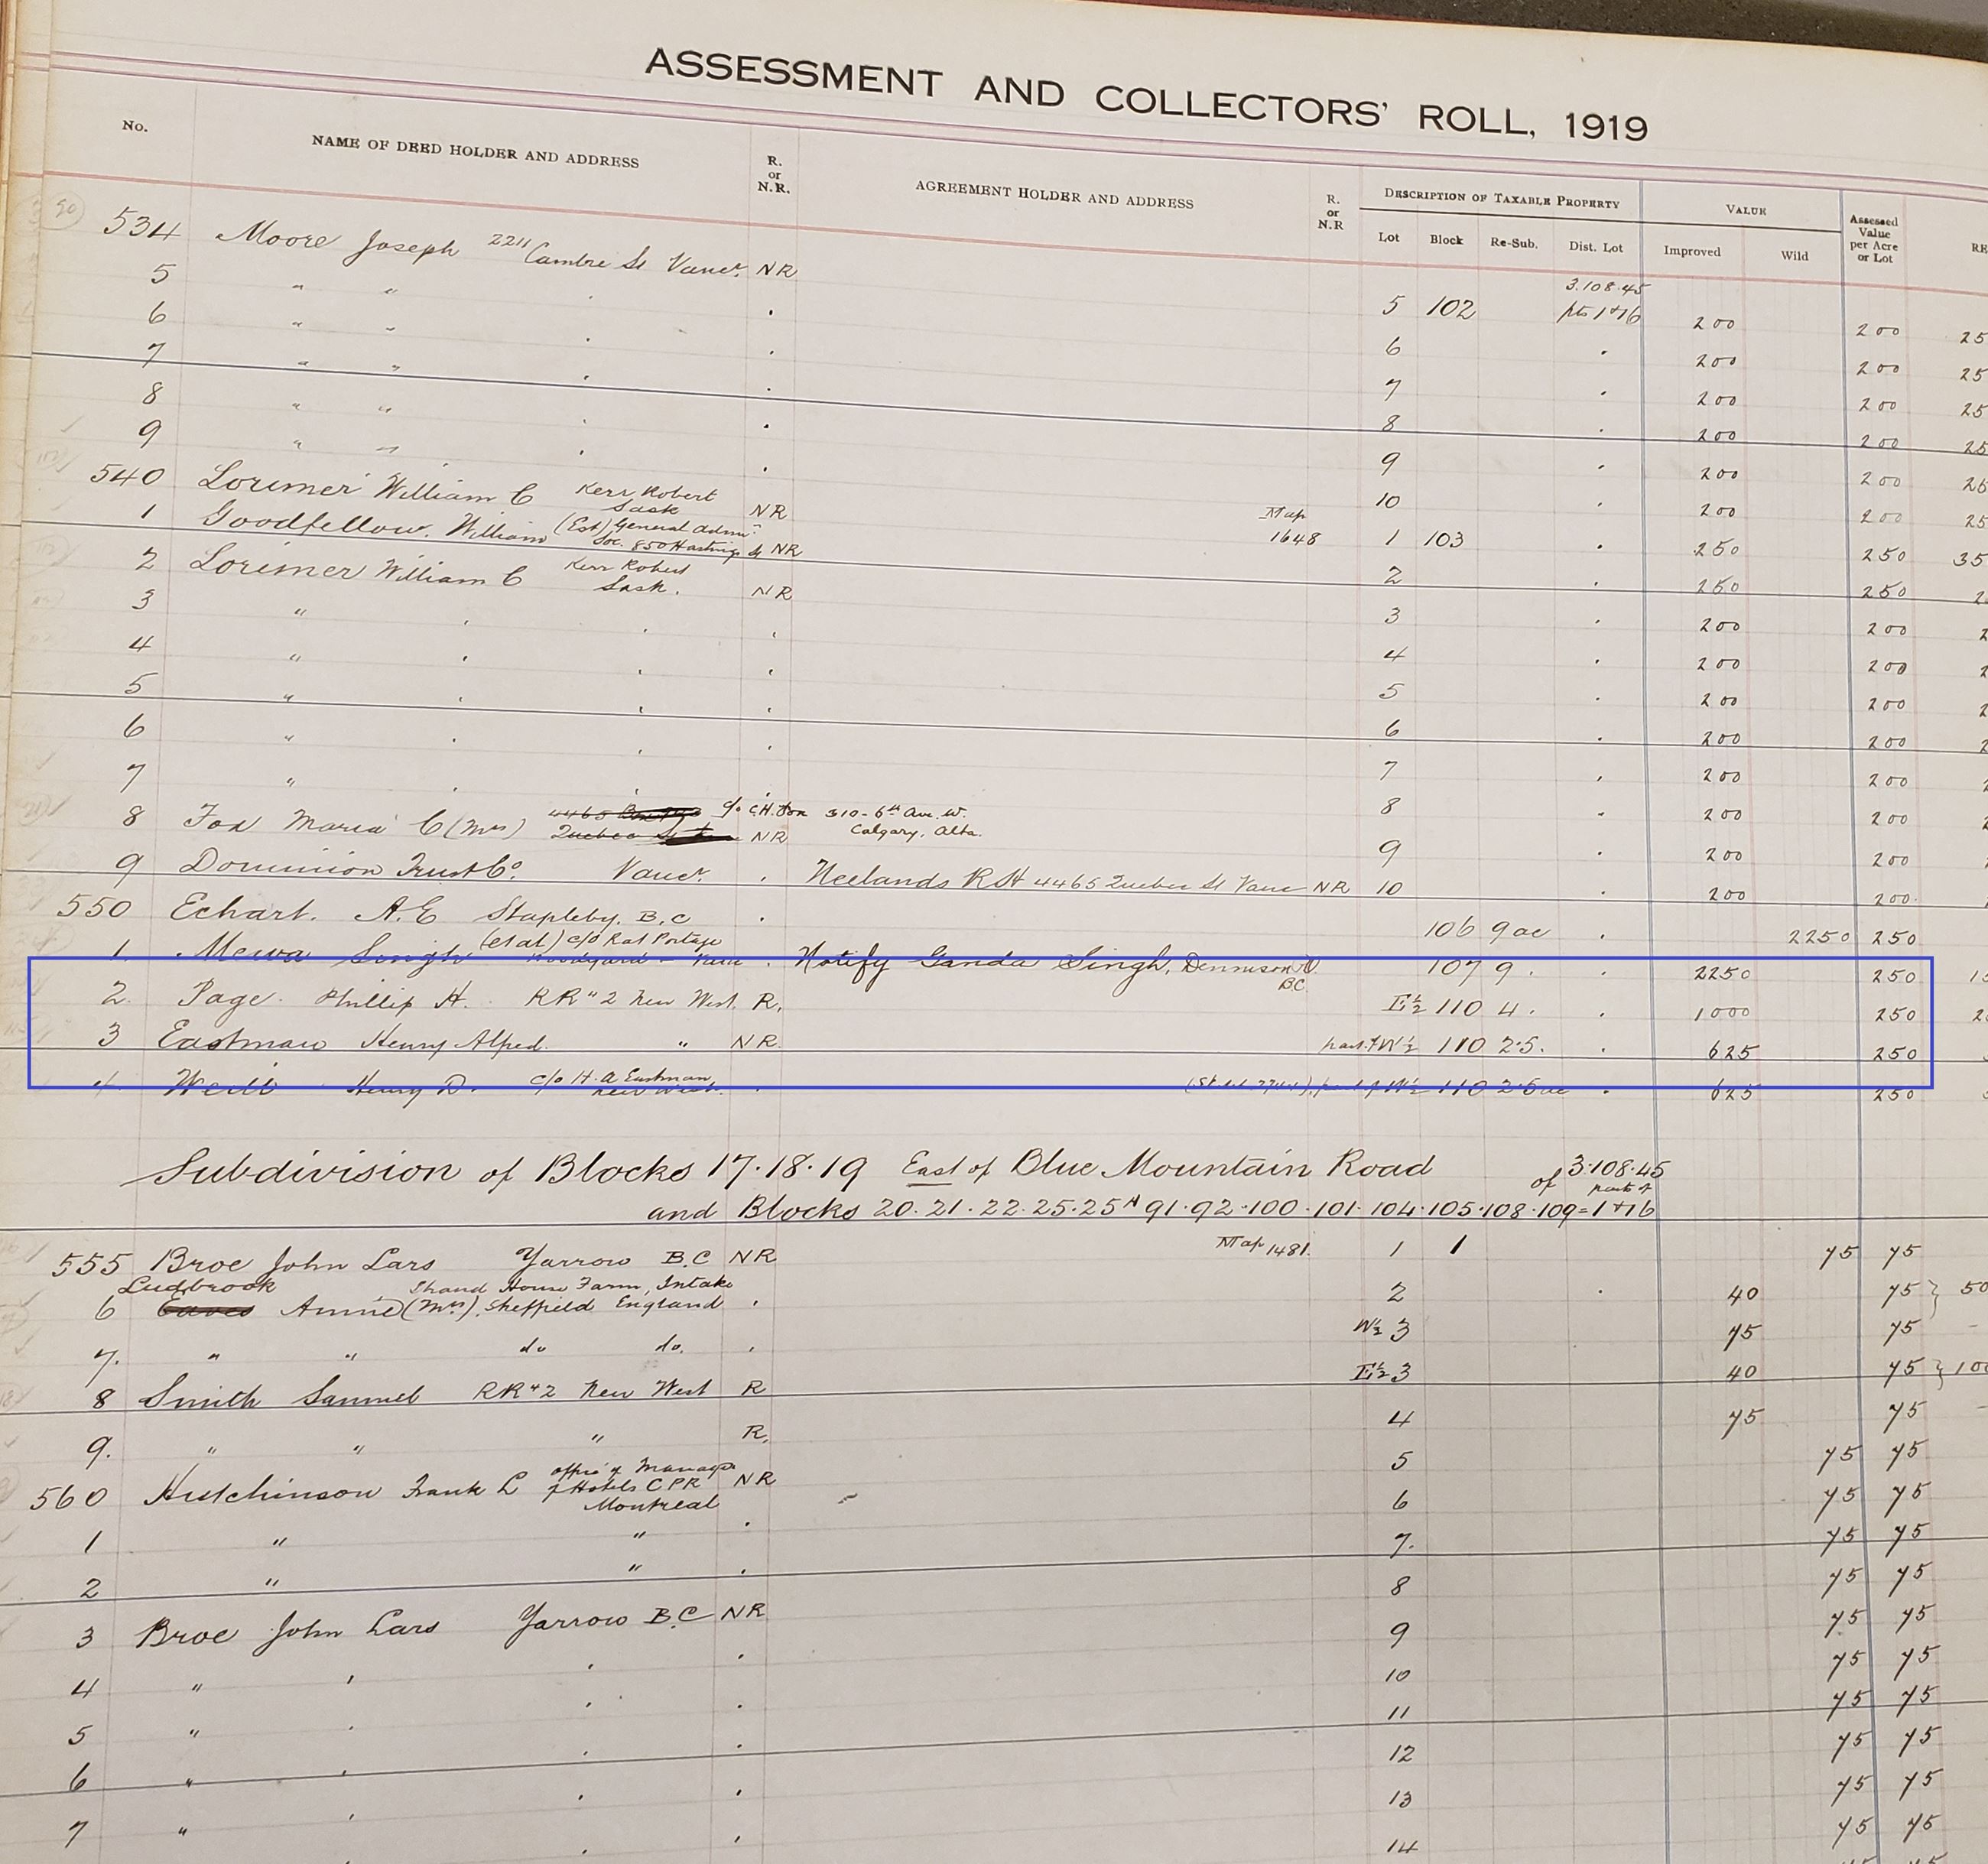 ASSESSMENT AND COLLECTORS' ROLL, 1919
No. NAME OF DEED HOLDER AND ADDRESS R. or N.R. AGREEMENT HOLDER AND ADDRESS R. or N.R DESCRIPTION OF TAXABLE PROPERTY VALUE Assessed Value per Acre or Lot RE
Lot Block Re-Sub. Dist. Lot Improved Wild
534 Moore Joseph 2211 Cambie St Vancr. NR 5 102 3.108.45 pts 1+16 200 200 25
5 " " 6 200 200 25
6 " " 7 200 200 25
7 " " 8 200 200 25
8 " " 9 200 200
9 " " 10 200 200 25
540 Lorimer William C Kerr Robert Sask NR
1 Goodfellow. William (Est) General Admn Soc. 850 Hastings St NR Map 1648 1 103 250 250 35
2 Lorimer William C Kerr Robert Sask. NR 2 250 250
3 " 3 200 200
4 " 4 200 200
5 " 5 200 200
6 " 6 200 200
7 " 7 200 200
8 Fox Maria C (Mrs) 4465 Quebec St c/o C.H. Fox 310-6th Ave. W. Calgary, Alta. NR 8 200 200
9 200 200
9 Dominion Trust Co. Vancr. Neelands R H 4465 Quebec St Vanc NR 10 200 200
550 Echart. A.E Stapleby. B.C 106 9 ac 2250 250
1. Mewa Singh (et al) c/o Rat Portage Woodyard Vanc Notify Ganda Singh, B.C. 107 9. 2250 250
2. Page. Phillip H. RR #2 New West. R. E½ 110 4. 1000 250
3 Eastman Henry Alfred. " NR part of W½ 110 2.5. 625 250
4. Henry D. c/o H. A Eastman New West. part of W½ 110 2.5 ac 625 250
Subdivision of Blocks 17.18.19 East of Blue Mountain Road of 3.108.45
and Blocks 20.21.22.25.25A 91.92.100.101.104.105.108.109 = parts of 1+16
555 Broe John Lars Yarrow B.C NR Map 1481. 1 1 75 75
Ludbrook Shand House Farm, Intake
6 Eaves Annie (Mrs). Sheffield England 2 40 75 } 50
7. " " do do. W½ 3 75 75
8 Smith Samuel RR #2 New West R E½ 3 40 75 } 100
9. " " " R. 4 75 75
5 75 75
560 Hutchinson Frank L office of Manager of Hotels CPR Montreal NR 6 75 75
1 " " 7. 75 75
2 " " 8 75 75
3 Broe John Lars Yarrow B.C NR 9 75 75
4 " 10 75 75
5 " 11 75 75
6 " 12 75 75
7 " 13 75 75
14 75 75